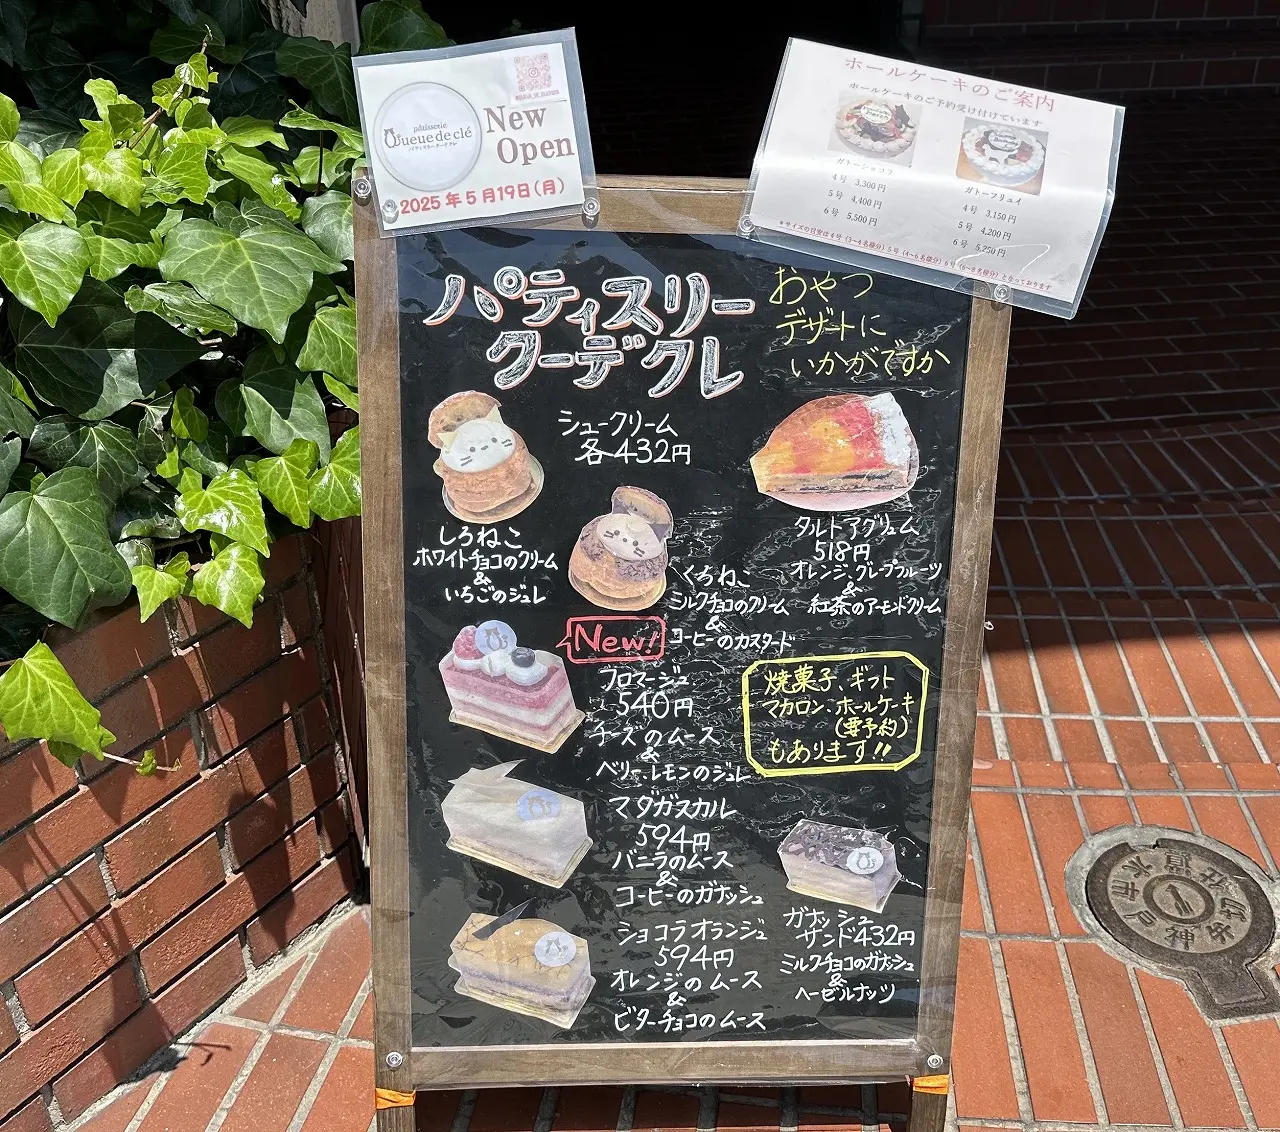 pâtisserie
Queue de clé
パティスリークーデクレ
New
Open
2025年5月19日(月)
ホールケーキのご案内
ホールケーキのご予約受け付けています
ガトーショコラ
4号 3,300円
5号 4,400円
6号 5,500円
ガトーフリュイ
4号 3,150円
5号 4,200円
6号 5,250円
※サイズの目安は4号(3~4名様分)5号(4~6名様分)6号(6~8名様分)となっております
パティスリー
クーデクレ
おやつ
デザートに
いかがですか
シュークリーム
各432円
しろねこ
ホワイトチョコのクリーム
&
いちごのジュレ
くろねこ
ミルクチョコのクリーム
&
コーヒーのカスタード
タルトアグリュム
518円
オレンジ、グレープフルーツ
&
紅茶のアーモンドクリーム
New!
フロマージュ
540円
チーズのムース
&
ベリー、レモンのジュレ
焼菓子、ギフト
マカロン、ホールケーキ
(要予約)
もあります!!
マダガスカル
594円
バニラのムース
&
コーヒーのガナッシュ
ショコラオランジュ
594円
オレンジのムース
&
ビターチョコのムース
ガナッシュ
サンド432円
ミルクチョコのガナッシュ
&
ヘーゼルナッツ